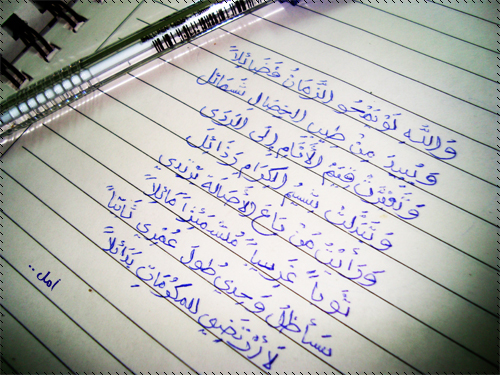 وَاللَّهِ لَوْ يَمْحُو الزَّمَانُ فَضَائِلاً
وَيُبِيدُ مِنْ طِيبِ الخِصَالِ شَمَائِل
وَتَعَثَّرَتْ قِيَمُ الأَنَامِ إِلَى الرَّدَى
وَتَبَدَّلَتْ شِيَمُ الكِرَامِ رَذَائِلَ
وَرَأَيْتُ مَنْ بَاعَ الأَصَالَةَ يَرْتَدِي
ثَوْباً غَرِيباً مُشْمَئِزّاً مَائِلاً
سَأَظَلُّ وَحْدِي طُولَ عُمْرِي ثَابِتاً
لاَ أَرْتَضِي لِلمَكْرُمَاتِ بَدَائِلاً
امل..